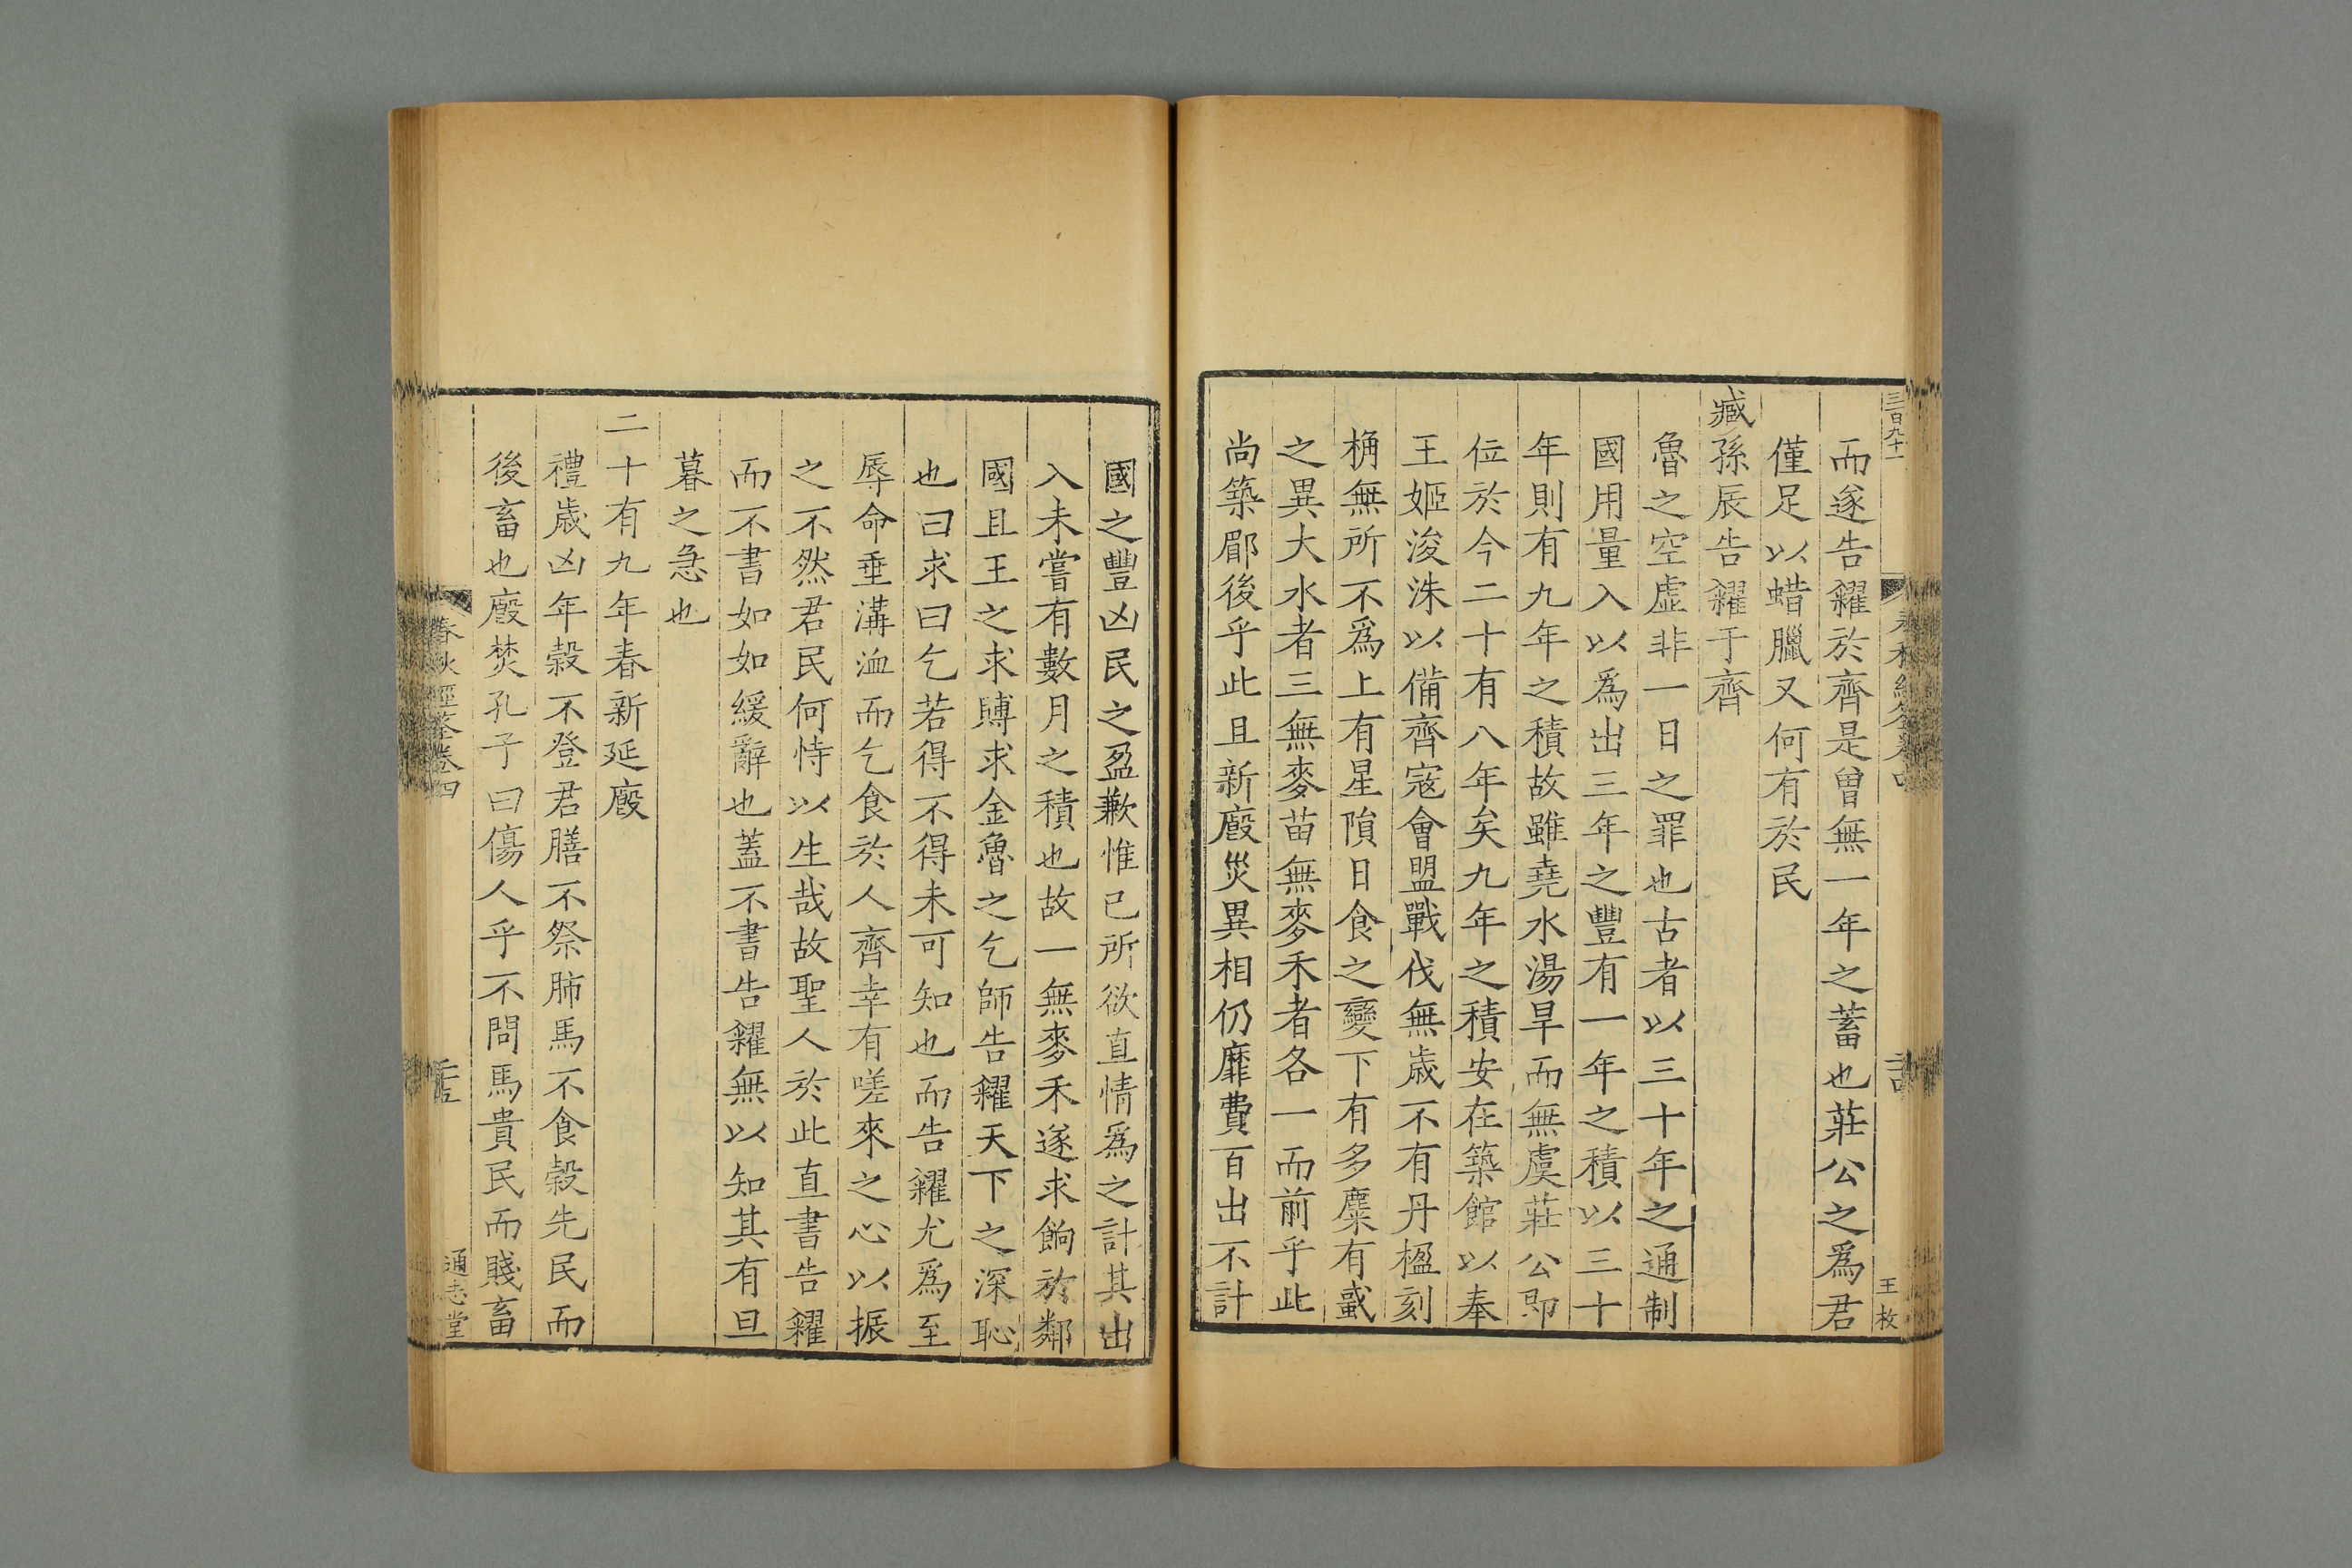 三百九十一
王枚
而遂告糴於齊是曾無一年之蓄也莊公之爲君
僅足以蜡臘又何有於民
臧孫辰告糴于齊
魯之空虛非一日之罪也古者以三十年之通制
國用量入以爲出三年之豐有一年之積以三十
年則有九年之積故雖堯水湯旱而無虞莊公卽
位於今二十有八年矣九年之積安在築館以奉
王姬浚洙以備齊寇會盟戰伐無歲不有丹楹刻
桷無所不爲上有星隕日食之變下有多麋有蜮
之異大水者三無麥苗無麥禾者各一而前乎此
尚築郿後乎此且新廄災異相仍靡費百出不計
國之豐凶民之盈歉惟已所欲直情爲之計其出
入未嘗有數月之積也故一無麥禾遂求餉於鄰
國且王之求賻求金魯之乞師告糴天下之深恥
也曰求曰乞若得不得未可知也而告糴尤爲至
辱命垂溝洫而乞食於人齊幸有嗟來之心以振
之不然君民何恃以生哉故聖人於此直書告糴
而不書如如緩辭也蓋不書告糴無以知其有旦
暮之急也
二十有九年春新延廄
禮歲凶年穀不登君膳不祭肺馬不食穀先民而
後畜也廄焚孔子曰傷人乎不問馬貴民而賤畜
春秋經筌卷四
通志堂